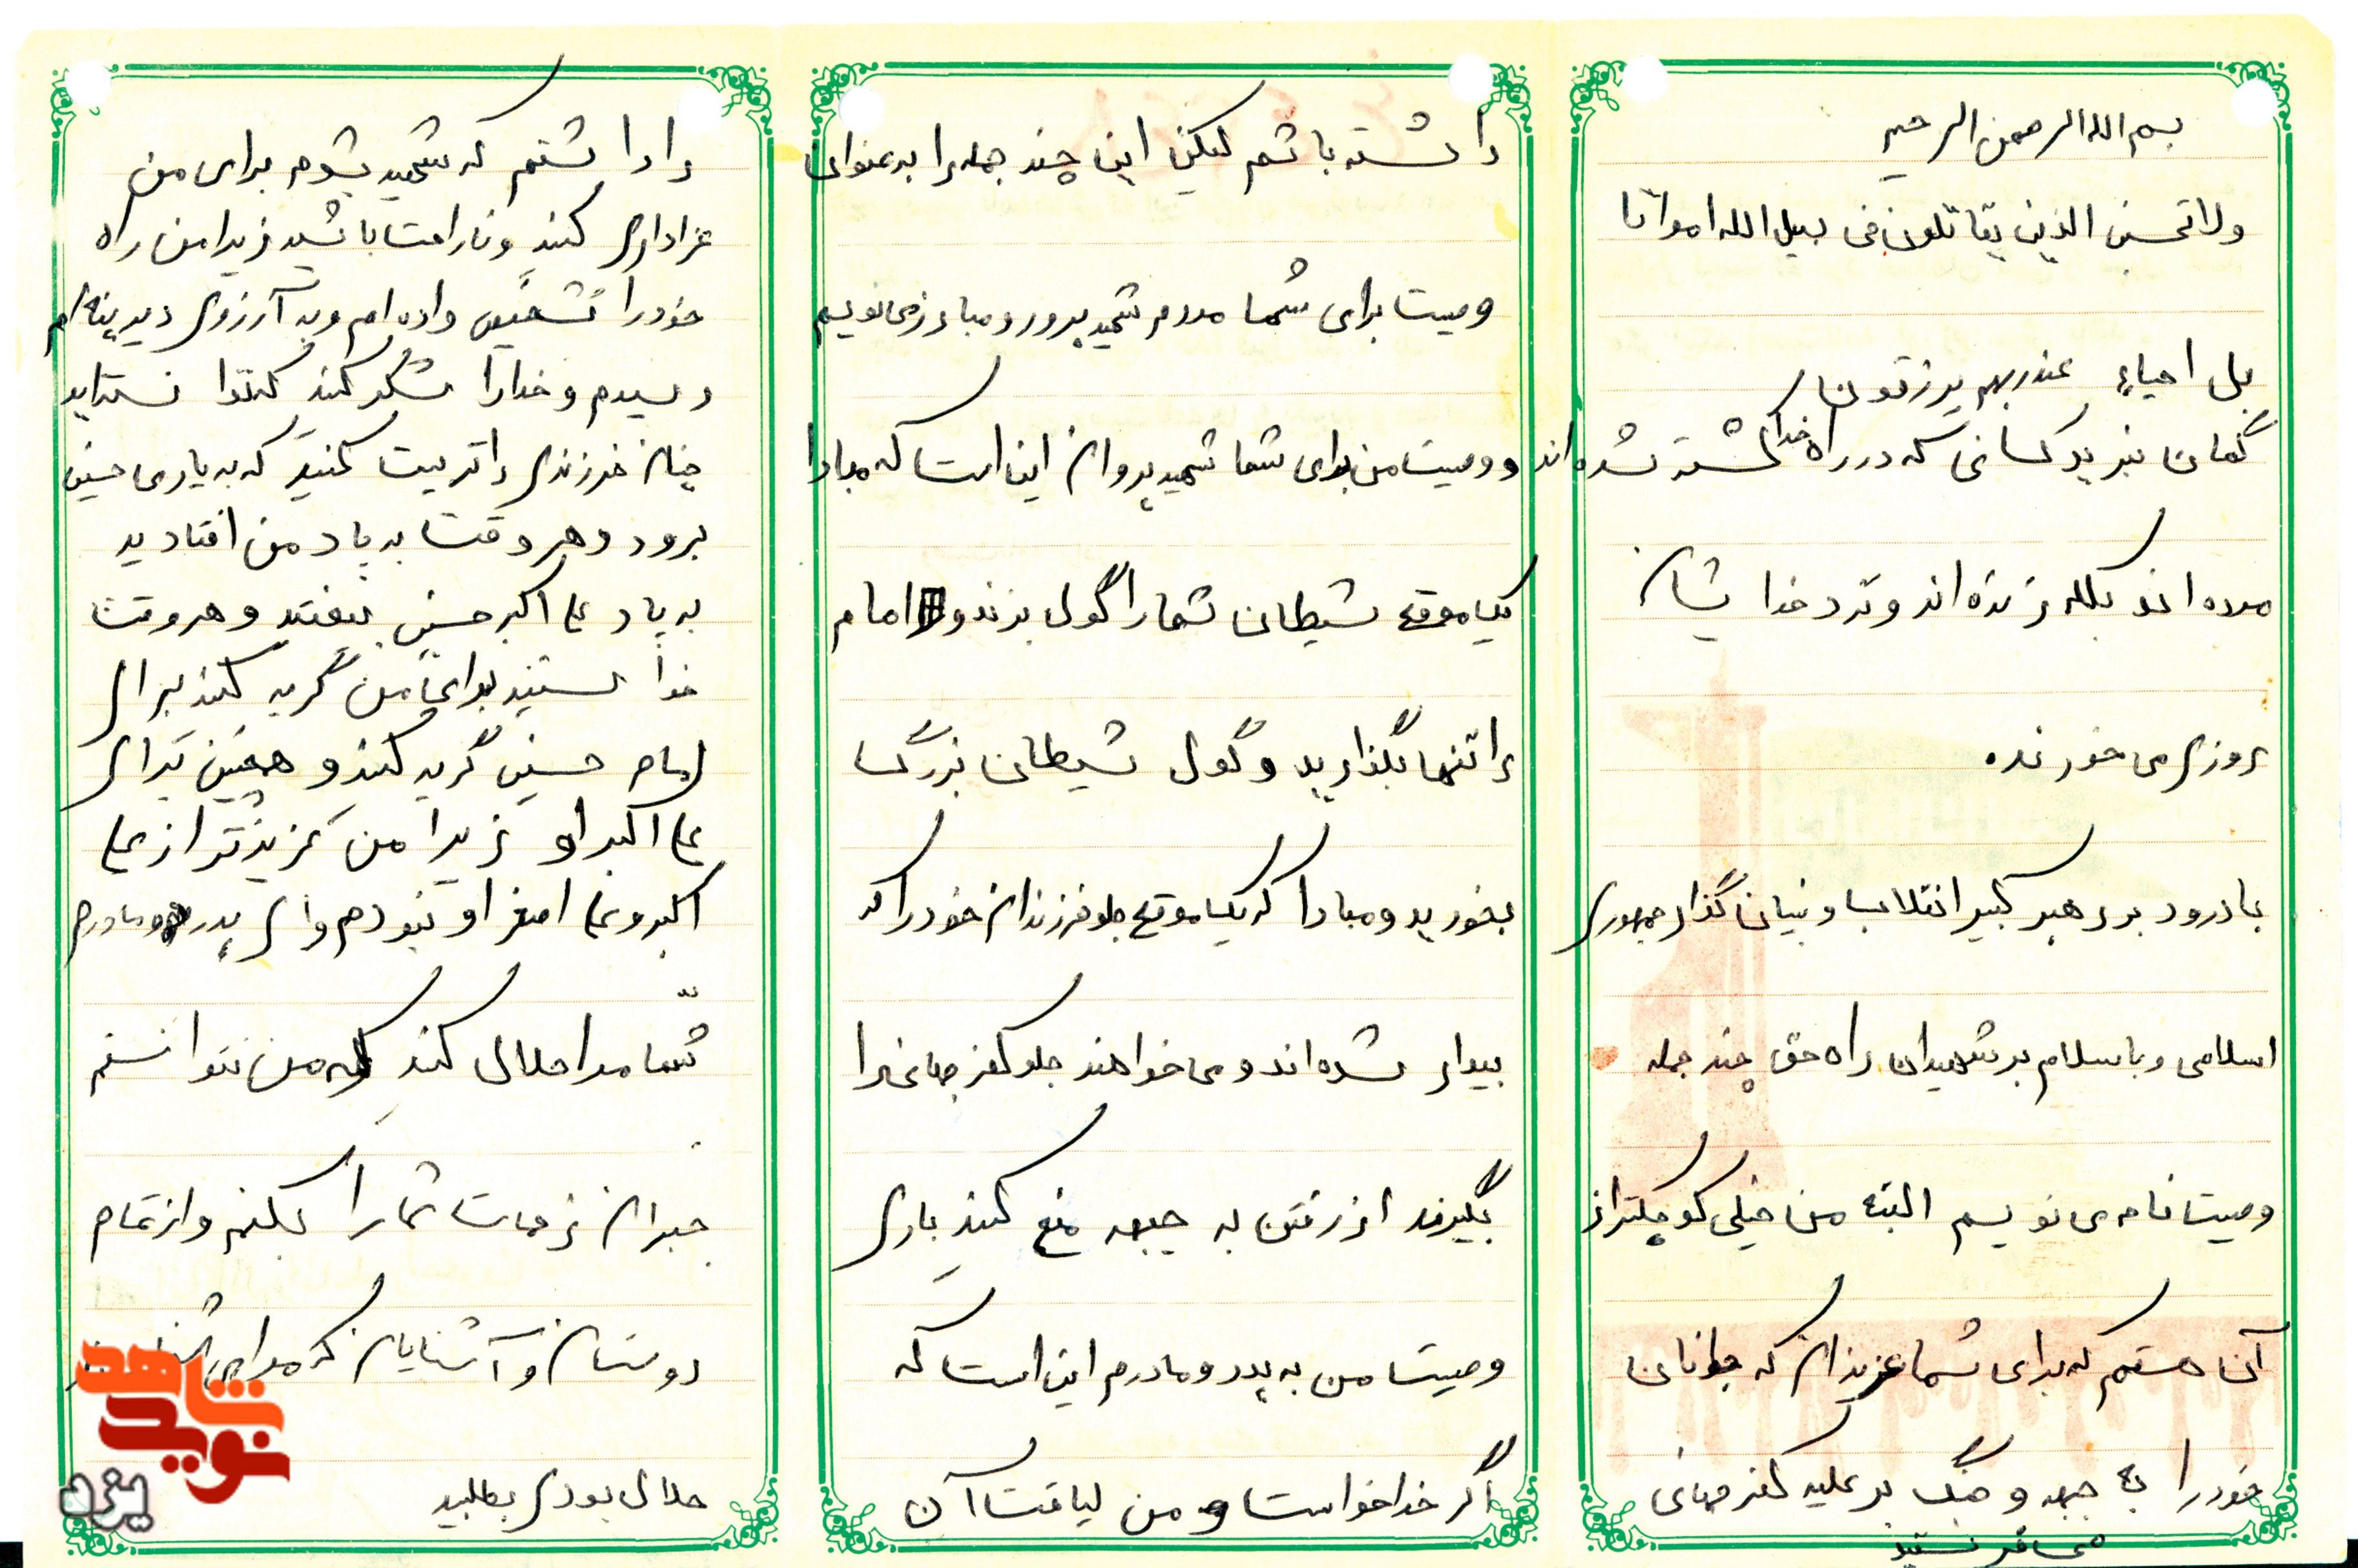 بسم الله الرحمن الرحیم
ولاتحسبن الذین یقاتلون فی سبیل الله امواتا
بل احیاء عند ربهم یرزقون
گمان نبرید کسانی که در راه خدا کشته شده اند
مرده اند بلکه زنده اند و نزد خدا یشان
روزی می خورنده
بادرود بر رهبر کبیر انقلاب و بنیان گذار جمهوری
اسلامی و باسلام بر شهیدان راه حق چند جمله
وصیت نامه می نویسم البته من خیلی کوچکتر از
آن هستم که برای شما عزیزانی که جوانان
خود را به جبهه و جنگ بر علیه کفر جهانی
می فرستید
داشته باشم لیکن این چند جمله را به عنوان
وصیت برای شما مردم شهید پرور و مبارز می نویسم
و وصیت من برای شما شهید پروران این است که مبادا
یک موقع شیطان شما را گول بزند و امام
را تنها بگذارید و گول شیطان بزرگ
بخورید و مبادا که یک موقع جلو فرزندان خود را که
بیدار شده اند و می خواهند جلو کفر جهانی را
بگیرند از رفتن به جبهه منع کنید باری
وصیت من به پدر و مادرم این است که
اگر خدا خواست و من لیاقت آن
را داشتم که شهید بشوم برای من
عزاداری کنید و ناراحت باشید زیرا من راه
خود را تشخیص داده ام و به آرزوی دیرینه ام
رسیدم و خدا را شکر کنید که توانستید
چنان فرزندی را تربیت کنید که به یاری حسین
برود و هر وقت به یاد من افتادید
به یاد علی اکبر حسین بیفتید و هر وقت
خواستید برای من گریه کنید برای
امام حسین گریه کنید و همچنین برای
علی اکبر او زیرا من عزیزتر از علی
اکبر و علی اصغر او نبودم وای پدر و مادرم
شما مرا حلال کنید که من نتوانستم
جبران زحمات شما را بکنم و از تمام
دوستان و آشنایان که مرا می
حلال بودی بطلبید
نوید شاهد
یزد